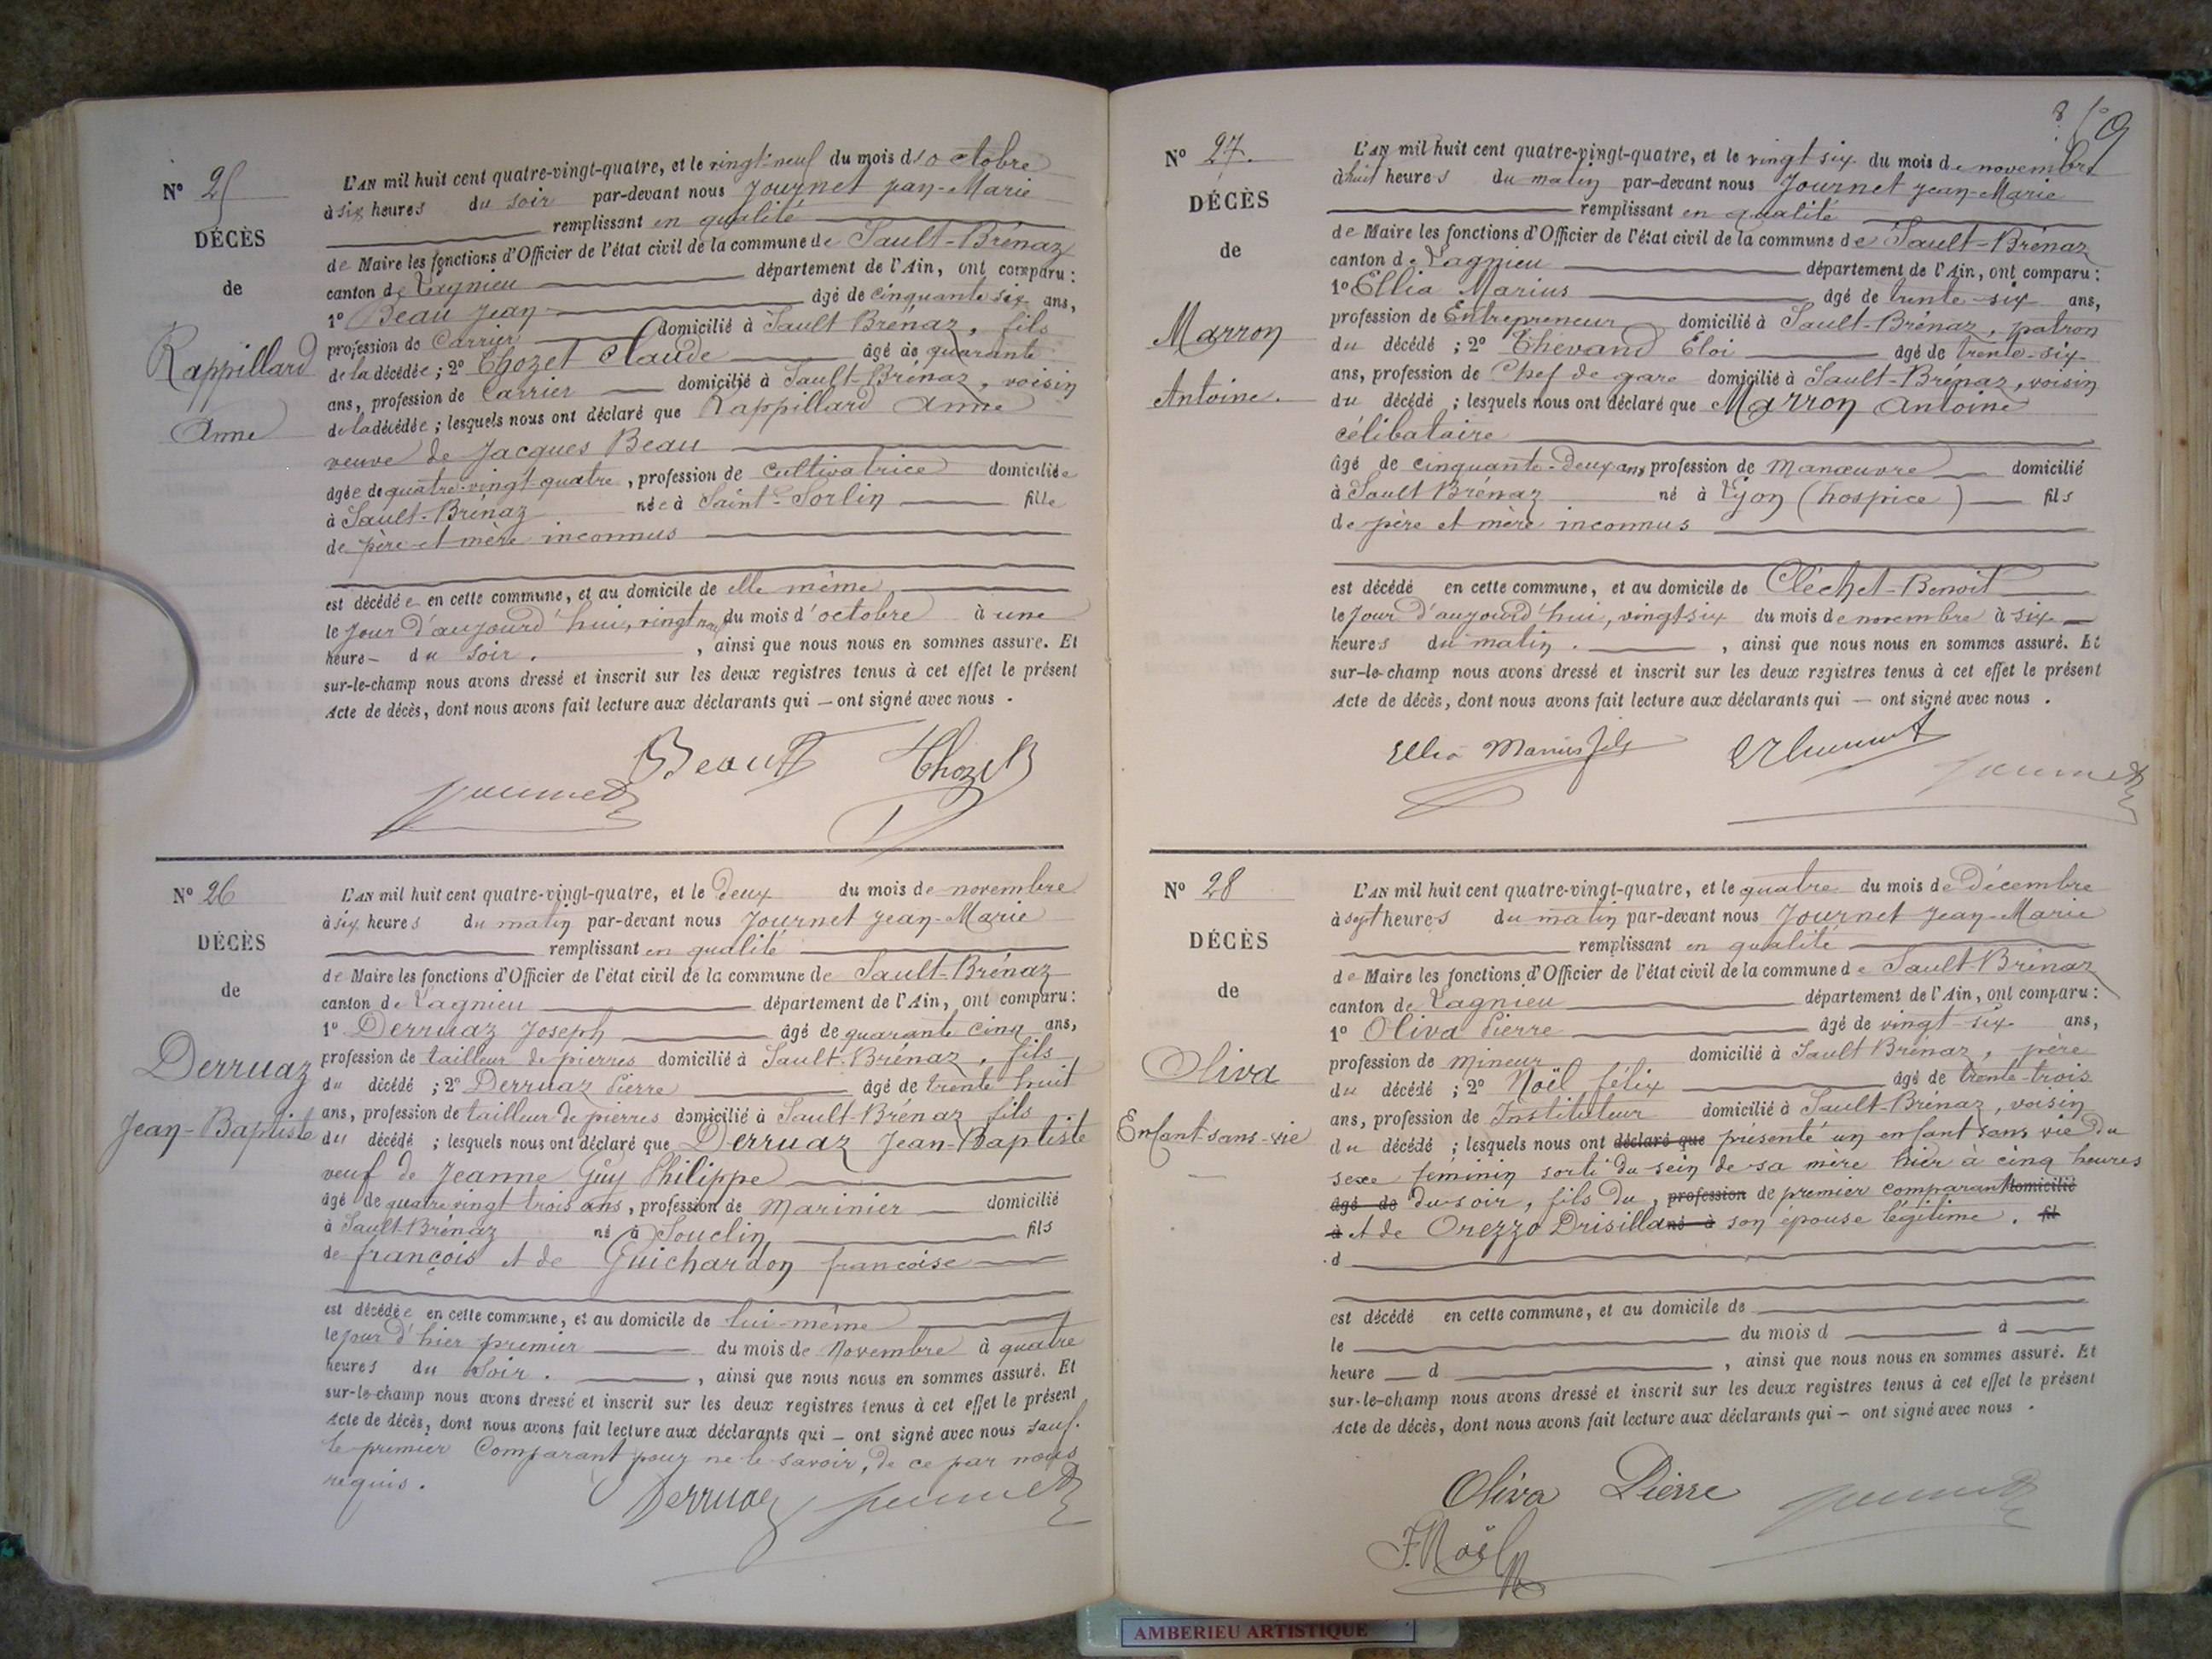 Nº 25
DÉCÈS
de
Rappillard
Anne
L'AN mil huit cent quatre-vingt-quatre, et le vingt-neuf du mois d'octobre
à six heures du soir par-devant nous Journet Jean-Marie
remplissant en qualité
de Maire les fonctions d'Officier de l'état civil de la commune de Sault-Brénaz
canton de Lagnieu département de l'Ain, ont comparu :
1º Beau Jean âgé de cinquante six ans,
profession de Carrier domicilié à Sault Brénaz, fils
de la décédée ; 2º Thozet Claude âgé de quarante
ans, profession de Carrier domicilié à Sault-Brénaz, voisin
de la décédée ; lesquels nous ont déclaré que Rappillard Anne
veuve de Jacques Beau
âgée de quatre-vingt-quatre, profession de Cultivatrice domiciliée
à Sault-Brénaz née à Saint-Sorlin fille
de père et mère inconnus
est décédée en cette commune, et au domicile de elle même
le Jour d'aujourd'hui, vingt neuf du mois d'octobre à une
heure du soir. , ainsi que nous nous en sommes assuré. Et
sur-le-champ nous avons dressé et inscrit sur les deux registres tenus à cet effet le présent
Acte de décès, dont nous avons fait lecture aux déclarants qui — ont signé avec nous .
Beau Thozet
Journet
Nº 26
DÉCÈS
de
Derruaz
Jean-Baptiste
L'AN mil huit cent quatre-vingt-quatre, et le Deux du mois de novembre
à six heures du matin par-devant nous Journet Jean-Marie
remplissant en qualité
de Maire les fonctions d'Officier de l'état civil de la commune de Sault-Brénaz
canton de Lagnieu département de l'Ain, ont comparu :
1º Derruaz Joseph âgé de quarante cinq ans,
profession de tailleur de pierres domicilié à Sault-Brénaz, fils
du décédé ; 2º Derruaz Pierre âgé de trente huit
ans, profession de tailleur de pierres domicilié à Sault-Brénaz fils
du décédé ; lesquels nous ont déclaré que Derruaz Jean-Baptiste
veuf de Jeanne Guy Philippe
âgé de quatre vingt trois ans, profession de Marinier domicilié
à Sault-Brénaz né à Souclin fils
de françois et de Guichardon francoise
est décédée en cette commune, et au domicile de lui-même
le jour d'hier premier du mois de Novembre à quatre
heures du Soir. , ainsi que nous nous en sommes assuré. Et
sur-le-champ nous avons dressé et inscrit sur les deux registres tenus à cet effet le présent
Acte de décès, dont nous avons fait lecture aux déclarants qui — ont signé avec nous sauf
le premier Comparant pour ne le savoir, de ce par nous
requis.
Derruaz Journet
Nº 27.
DÉCÈS
de
Marron
Antoine.
L'AN mil huit cent quatre-vingt-quatre, et le vingt six du mois de novembre
à huit heures du matin par-devant nous Journet Jean-Marie
remplissant en qualité
de Maire les fonctions d'Officier de l'état civil de la commune de Sault-Brénaz
canton de Lagnieu département de l'Ain, ont comparu :
1º Ellia Marius âgé de trente-six ans,
profession de Entrepreneur domicilié à Sault-Brénaz, patron
du décédé ; 2º Thevand Eloi âgé de trente-six
ans, profession de Chef de gare domicilié à Sault-Brénaz, voisin
du décédé ; lesquels nous ont déclaré que Marron Antoine
célibataire
âgé de cinquante-deux ans, profession de Manœuvre domicilié
à Sault Brénaz né à Lyon (hospice) fils
de père et mère inconnus
est décédé en cette commune, et au domicile de Cléchet-Benoit
le Jour d'aujourd'hui, vingt-six du mois de novembre à six
heures du matin. , ainsi que nous nous en sommes assuré. Et
sur-le-champ nous avons dressé et inscrit sur les deux registres tenus à cet effet le présent
Acte de décès, dont nous avons fait lecture aux déclarants qui — ont signé avec nous .
Ellia Marius fils
Journet
Nº 28
DÉCÈS
de
Oliva
Enfant sans-vie
L'AN mil huit cent quatre-vingt-quatre, et le quatre du mois de Décembre
à sept heures du matin par-devant nous Journet Jean-Marie
remplissant en qualité
de Maire les fonctions d'Officier de l'état civil de la commune de Sault-Brénaz
canton de Lagnieu département de l'Ain, ont comparu :
1º Oliva Pierre âgé de vingt-six ans,
profession de mineur domicilié à Sault Brénaz, père
du décédé ; 2º Noël félix âgé de trente-trois
ans, profession de Instituteur domicilié à Sault-Brénaz, voisin
du décédé ; lesquels nous ont déclaré que présenté un enfant sans vie du
sexe féminin sorti du sein de sa mère hier à cinq heures
âgé de du soir, fils du, profession de premier comparant domicilié
à et de Orezzo Drisilla né à son épouse légitime. fil
d
est décédé en cette commune, et au domicile de
le du mois d à
heure d , ainsi que nous nous en sommes assuré. Et
sur-le-champ nous avons dressé et inscrit sur les deux registres tenus à cet effet le présent
Acte de décès, dont nous avons fait lecture aux déclarants qui — ont signé avec nous .
Oliva Pierre Journet
F. Noël
AMBERIEU ARTISTIQUE